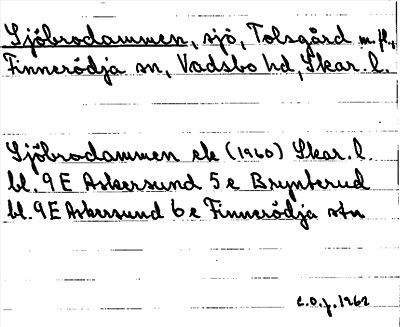 Sjöbrodammen, sjö, Tolsgård m. fl.,
Finnerödja sn, Vadsbo hd, Skar. l.
Sjöbrodammen ek (1960) Skar. l.
bl. 9E Askersund 5 e Brynterud
bl. 9E Askersund 6 e Finnerödja stn
C.O.J. 1962